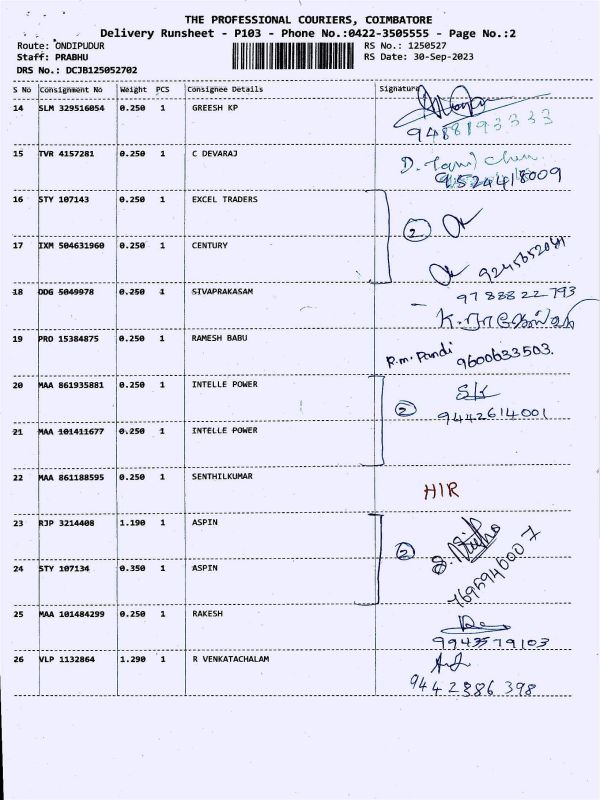 THE PROFESSIONAL COURIERS, COIMBATORE
Delivery Runsheet - P103 - Phone No.:0422-3505555 - Page No.:2
Route: ONDIPUDUR RS No.: 1250527
Staff: PRABHU RS Date: 30-Sep-2023
DRS No.: DCJB125052702
S No Consignment No Weight PCS Consignee Details Signature
14 SLM 329516054 0.250 1 GREESH KP
9488193333
15 TVR 4157281 0.250 1 C DEVARAJ D. Tamil
9524418009
16 STY 107143 0.250 1 EXCEL TRADERS
2
17 IXM 504631960 0.250 1 CENTURY
9245652081
18 DDG 5049978 0.250 1 SIVAPRAKASAM 9788822793
19 PRO 15384875 0.250 1 RAMESH BABU R.m. Pandi 9600633503.
20 MAA 861935881 0.250 1 INTELLE POWER SK
2 9442614001
21 MAA 101411677 0.250 1 INTELLE POWER
22 MAA 861188595 0.250 1 SENTHILKUMAR HIR
23 RJP 3214408 1.190 1 ASPIN
2 7695946007
24 STY 107134 0.350 1 ASPIN
25 MAA 101484299 0.250 1 RAKESH
9943579103
26 VLP 1132864 1.290 1 R VENKATACHALAM
9442386398